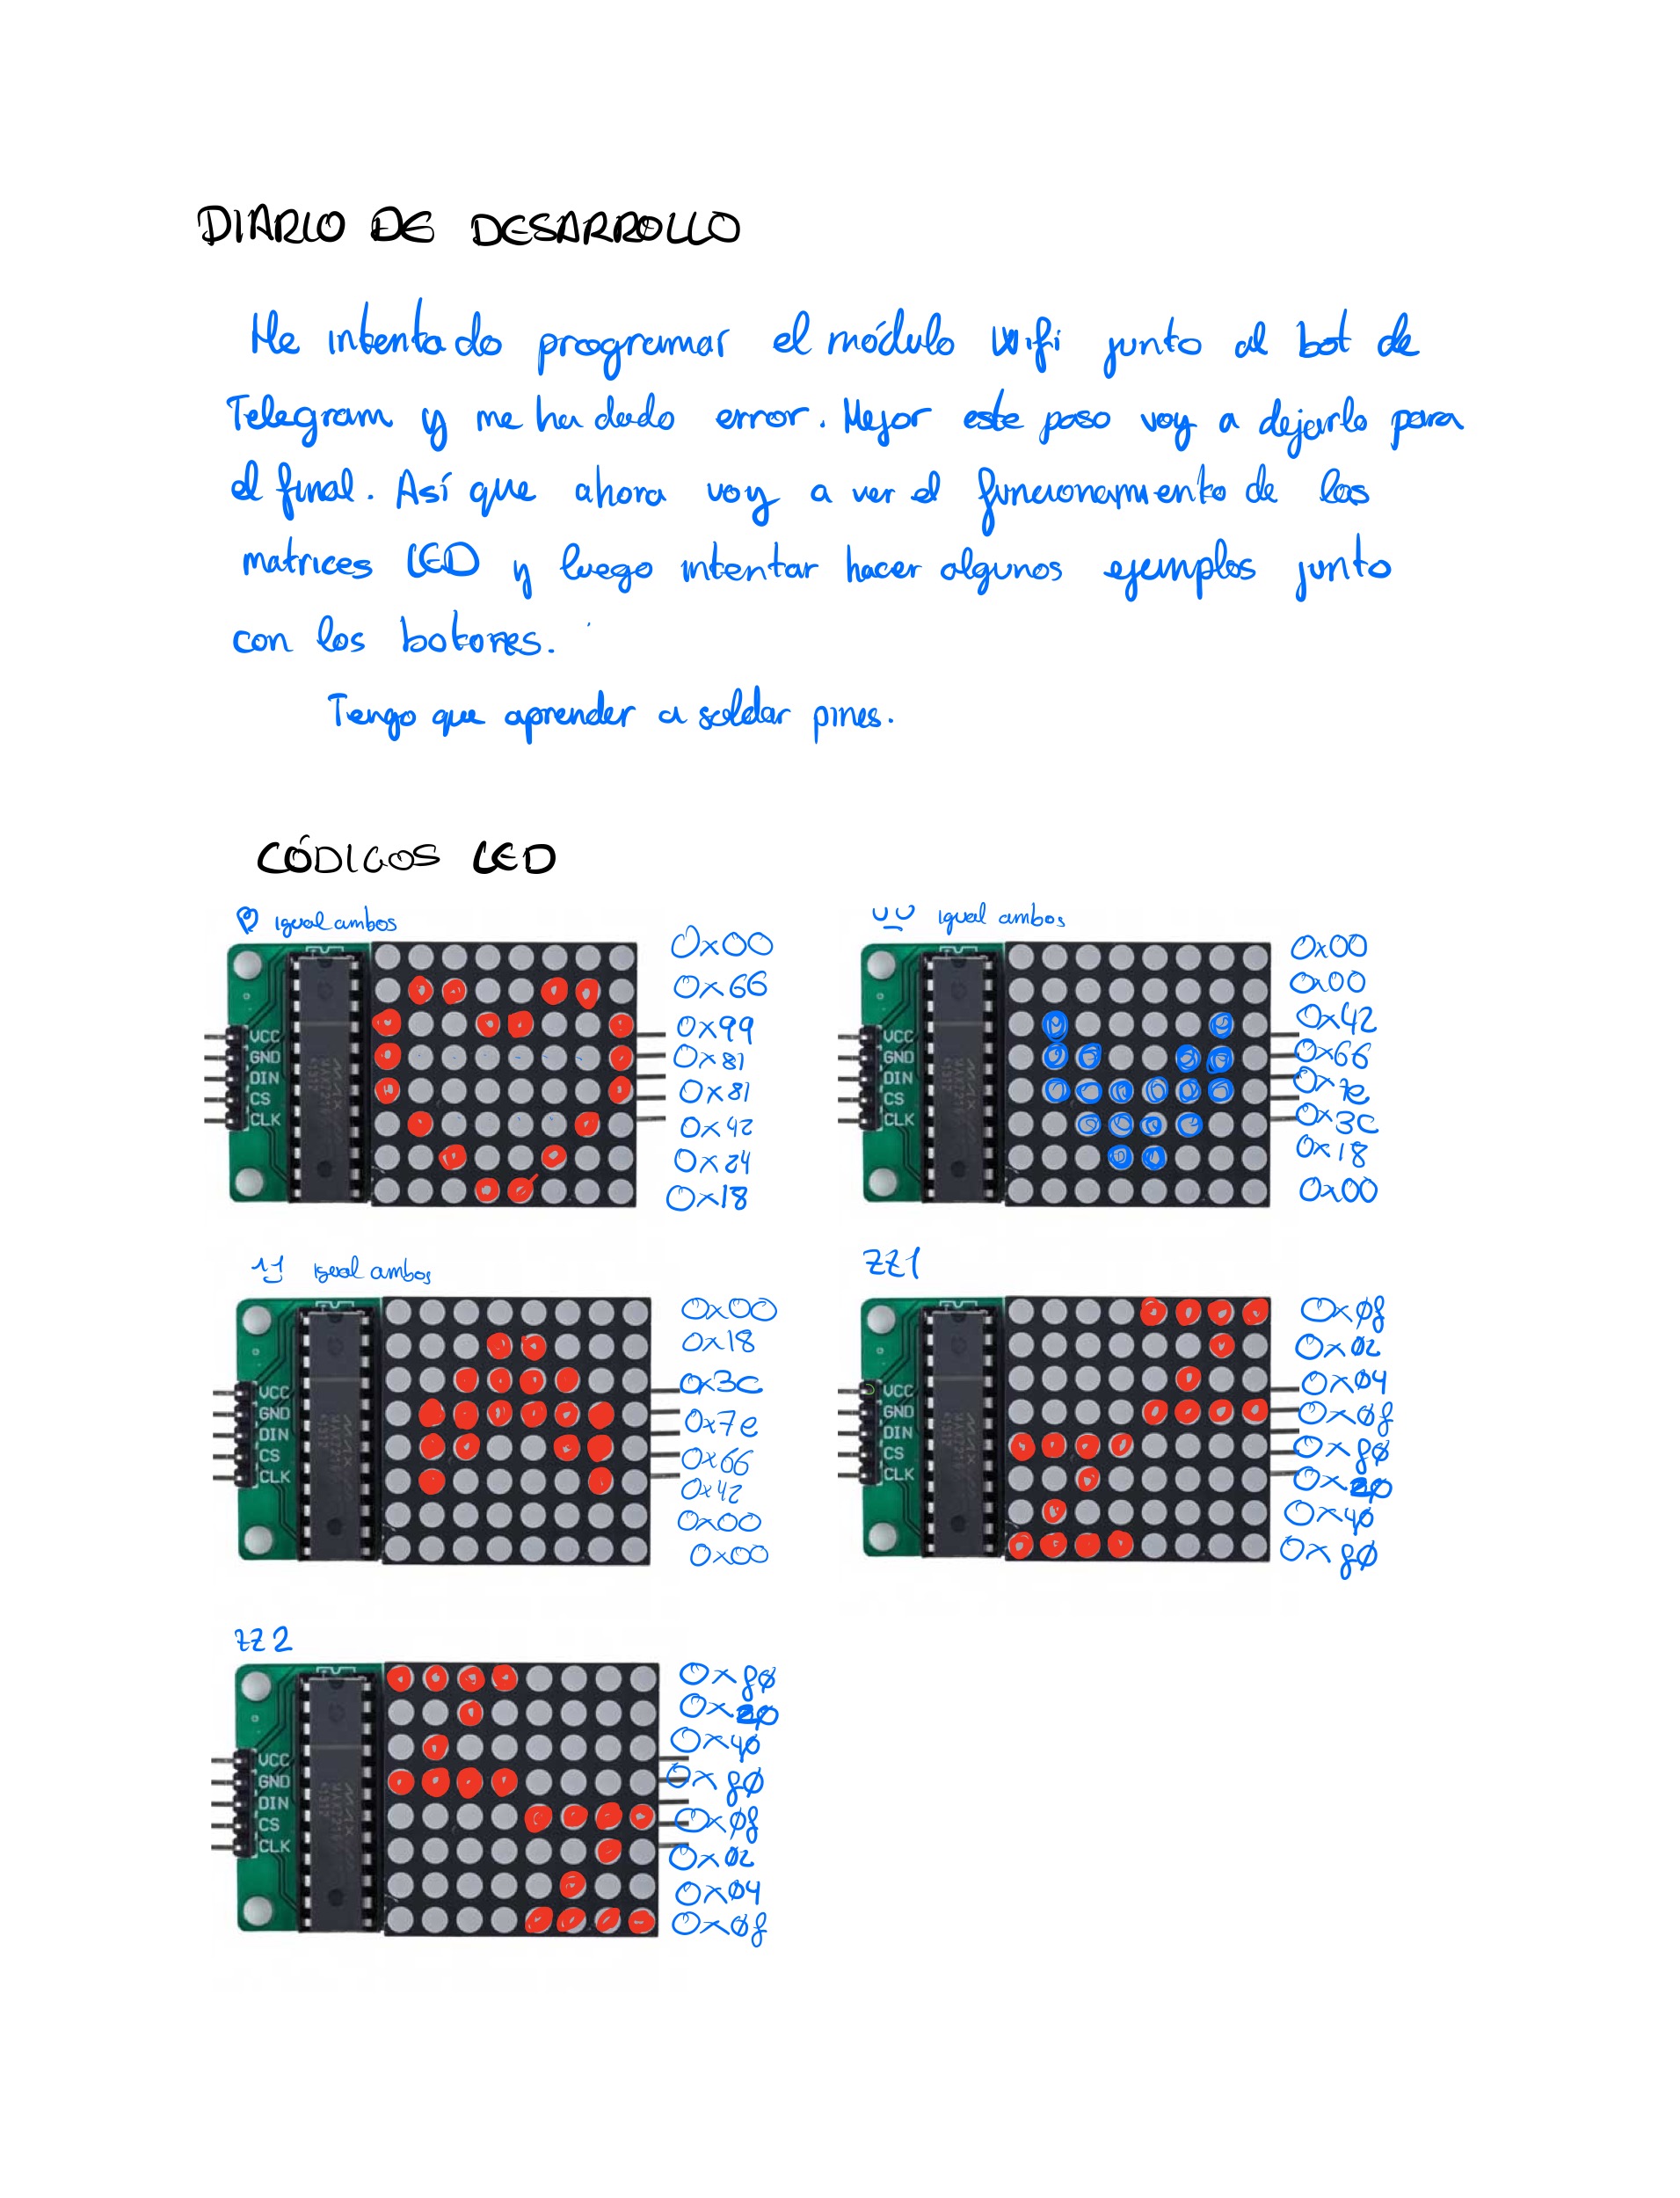 DIARIO DE DESARROLLO
He intentado programar el módulo Wifi junto al bot de
Telegram y me ha dado error. Mejor este paso voy a dejarlo para
el final. Así que ahora voy a ver el funcionamiento de las
matrices LED y luego intentar hacer algunos ejemplos junto
con los botones.
Tengo que aprender a soldar pines.
CÓDIGOS LED
igual ambos
VCC
GND
DIN
CS
CLK
0x00
0x66
0x99
0x81
0x81
0x42
0x24
0x18
igual ambos
VCC
GND
DIN
CS
CLK
0x00
0x00
0x42
0x66
0x7e
0x3C
0x18
0x00
igual ambos
VCC
GND
DIN
CS
CLK
0x00
0x18
0x3C
0x7e
0x66
0x42
0x00
0x00
ZZ1
VCC
GND
DIN
CS
CLK
0x0f
0x02
0x04
0x0f
0xf0
0x20
0x40
0xf0
ZZ2
VCC
GND
DIN
CS
CLK
0xf0
0x20
0x40
0xf0
0x0f
0x02
0x04
0x0f